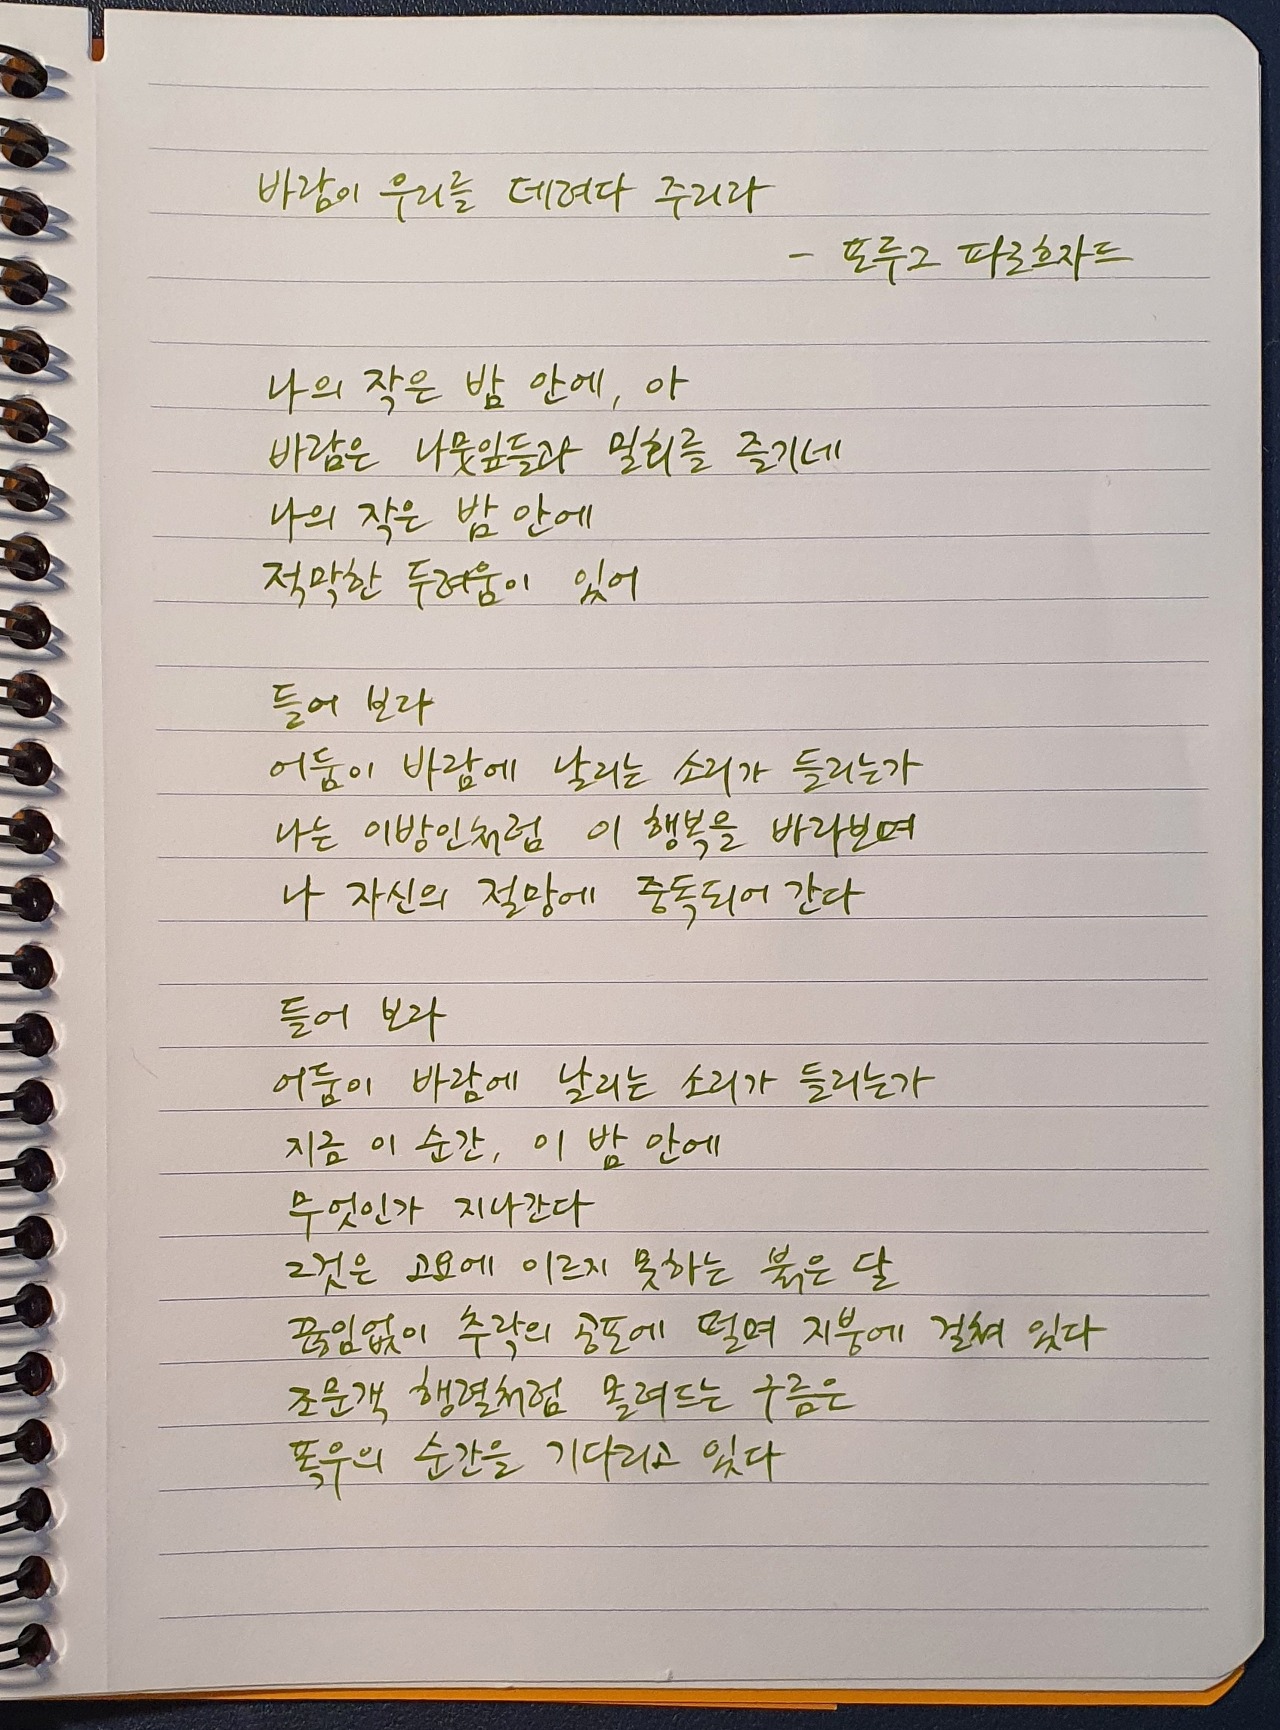 바람이 우리를 데려다 주리라
- 포루그 파로흐자드
나의 작은 밤 안에, 아
바람은 나뭇잎들과 밀회를 즐기네
나의 작은 밤 안에
적막한 두려움이 있어
들어 보라
어둠이 바람에 날리는 소리가 들리는가
나는 이방인처럼 이 행복을 바라보며
나 자신의 절망에 중독되어 간다
들어 보라
어둠이 바람에 날리는 소리가 들리는가
지금 이 순간, 이 밤 안에
무엇인가 지나간다
그것은 고요에 이르지 못하는 붉은 달
끊임없이 추락의 공포에 떨며 지붕에 걸쳐 있다
조문객 행렬처럼 몰려드는 구름은
폭우의 순간을 기다리고 있다